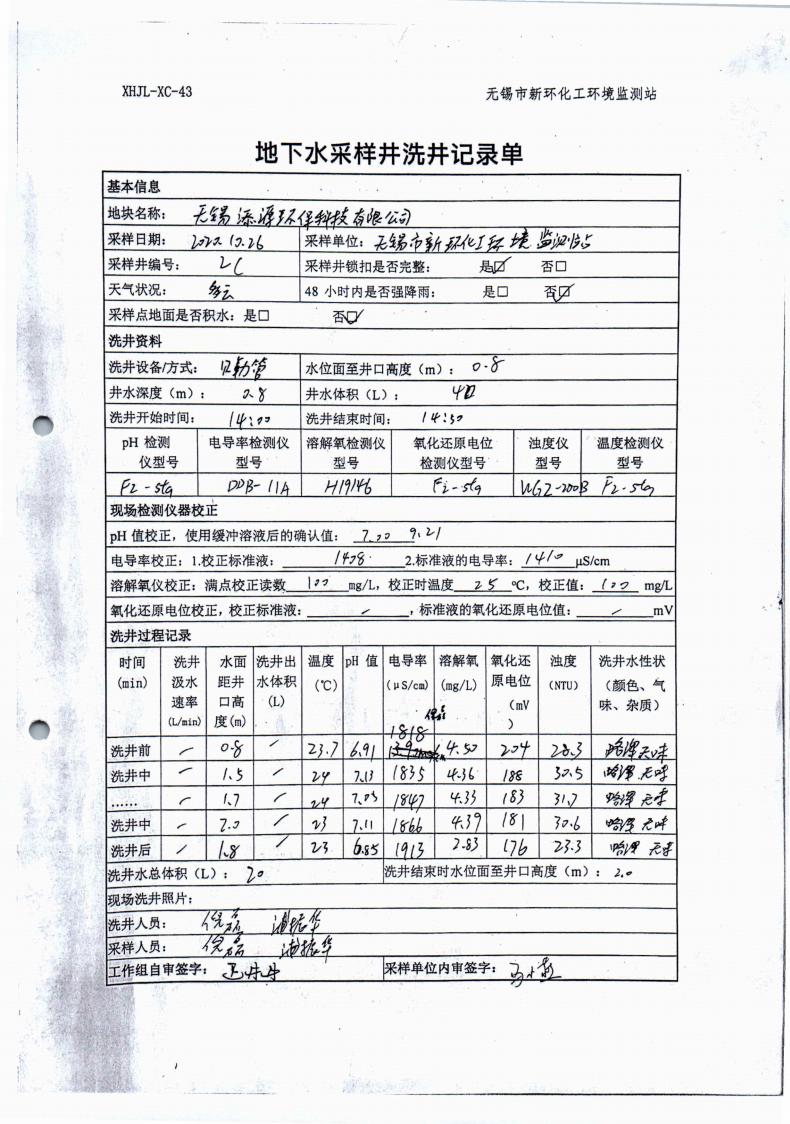 XHJL-XC-43 无锡市新环化工环境监测站
地下水采样井洗井记录单
基本信息
地块名称： 无锡添源环保科技有限公司
采样日期： 2020.10.26 采样单位：无锡市新环化工环境监测站
采样井编号： 采样井锁扣是否完整： 是☑ 否□
天气状况： 多云 48 小时内是否强降雨： 是□ 否☑
采样点地面是否积水：是□ 否☑
洗井资料
洗井设备/方式： 贝勒管 水位面至井口高度（m）： 0.8
井水深度（m）： 井水体积（L）：
洗井开始时间： 14:00 洗井结束时间： 14:50
pH 检测 电导率检测仪 溶解氧检测仪 氧化还原电位 浊度仪 温度检测仪
仪型号 型号 型号 检测仪型号 型号 型号
DDB-11A H19146 WGZ-200B
现场检测仪器校正
pH 值校正，使用缓冲溶液后的确认值： 7.00 9.21
电导率校正：1.校正标准液： 1408 2.标准液的电导率： 1410 μS/cm
溶解氧仪校正：满点校正读数 100 mg/L，校正时温度 25 ℃，校正值： 100 mg/L
氧化还原电位校正，校正标准液： / ，标准液的氧化还原电位值： / mV
洗井过程记录
时间 洗井 水面 洗井出 温度 pH 值 电导率 溶解氧 氧化还 浊度 洗井水性状
(min) 汲水 距井 水体积 (℃) (μS/cm) (mg/L) 原电位 (NTU) （颜色、气
速率 口高 (L) （mV 味、杂质）
(L/min) 度(m) ）
洗井前 / 0.8 / 23.7 6.91 1818 4.50 204 28.3 略浑无味
洗井中 / 1.5 / 24 7.13 1835 4.36 188 30.5 略浑.无味
…… / 1.7 / 24 7.05 1847 4.33 183 31.7 略浑 无味
洗井中 / 2.0 / 23 7.11 1866 4.39 181 30.6 略浑 无味
洗井后 / 1.8 / 23 6.85 1913 2.83 176 23.3 略浑 无味
洗井水总体积（L）： 20 洗井结束时水位面至井口高度（m）： 2.0
现场洗井照片：
洗井人员： 倪磊 浦振华
采样人员： 倪磊 浦振华
工作组自审签字： 采样单位内审签字：